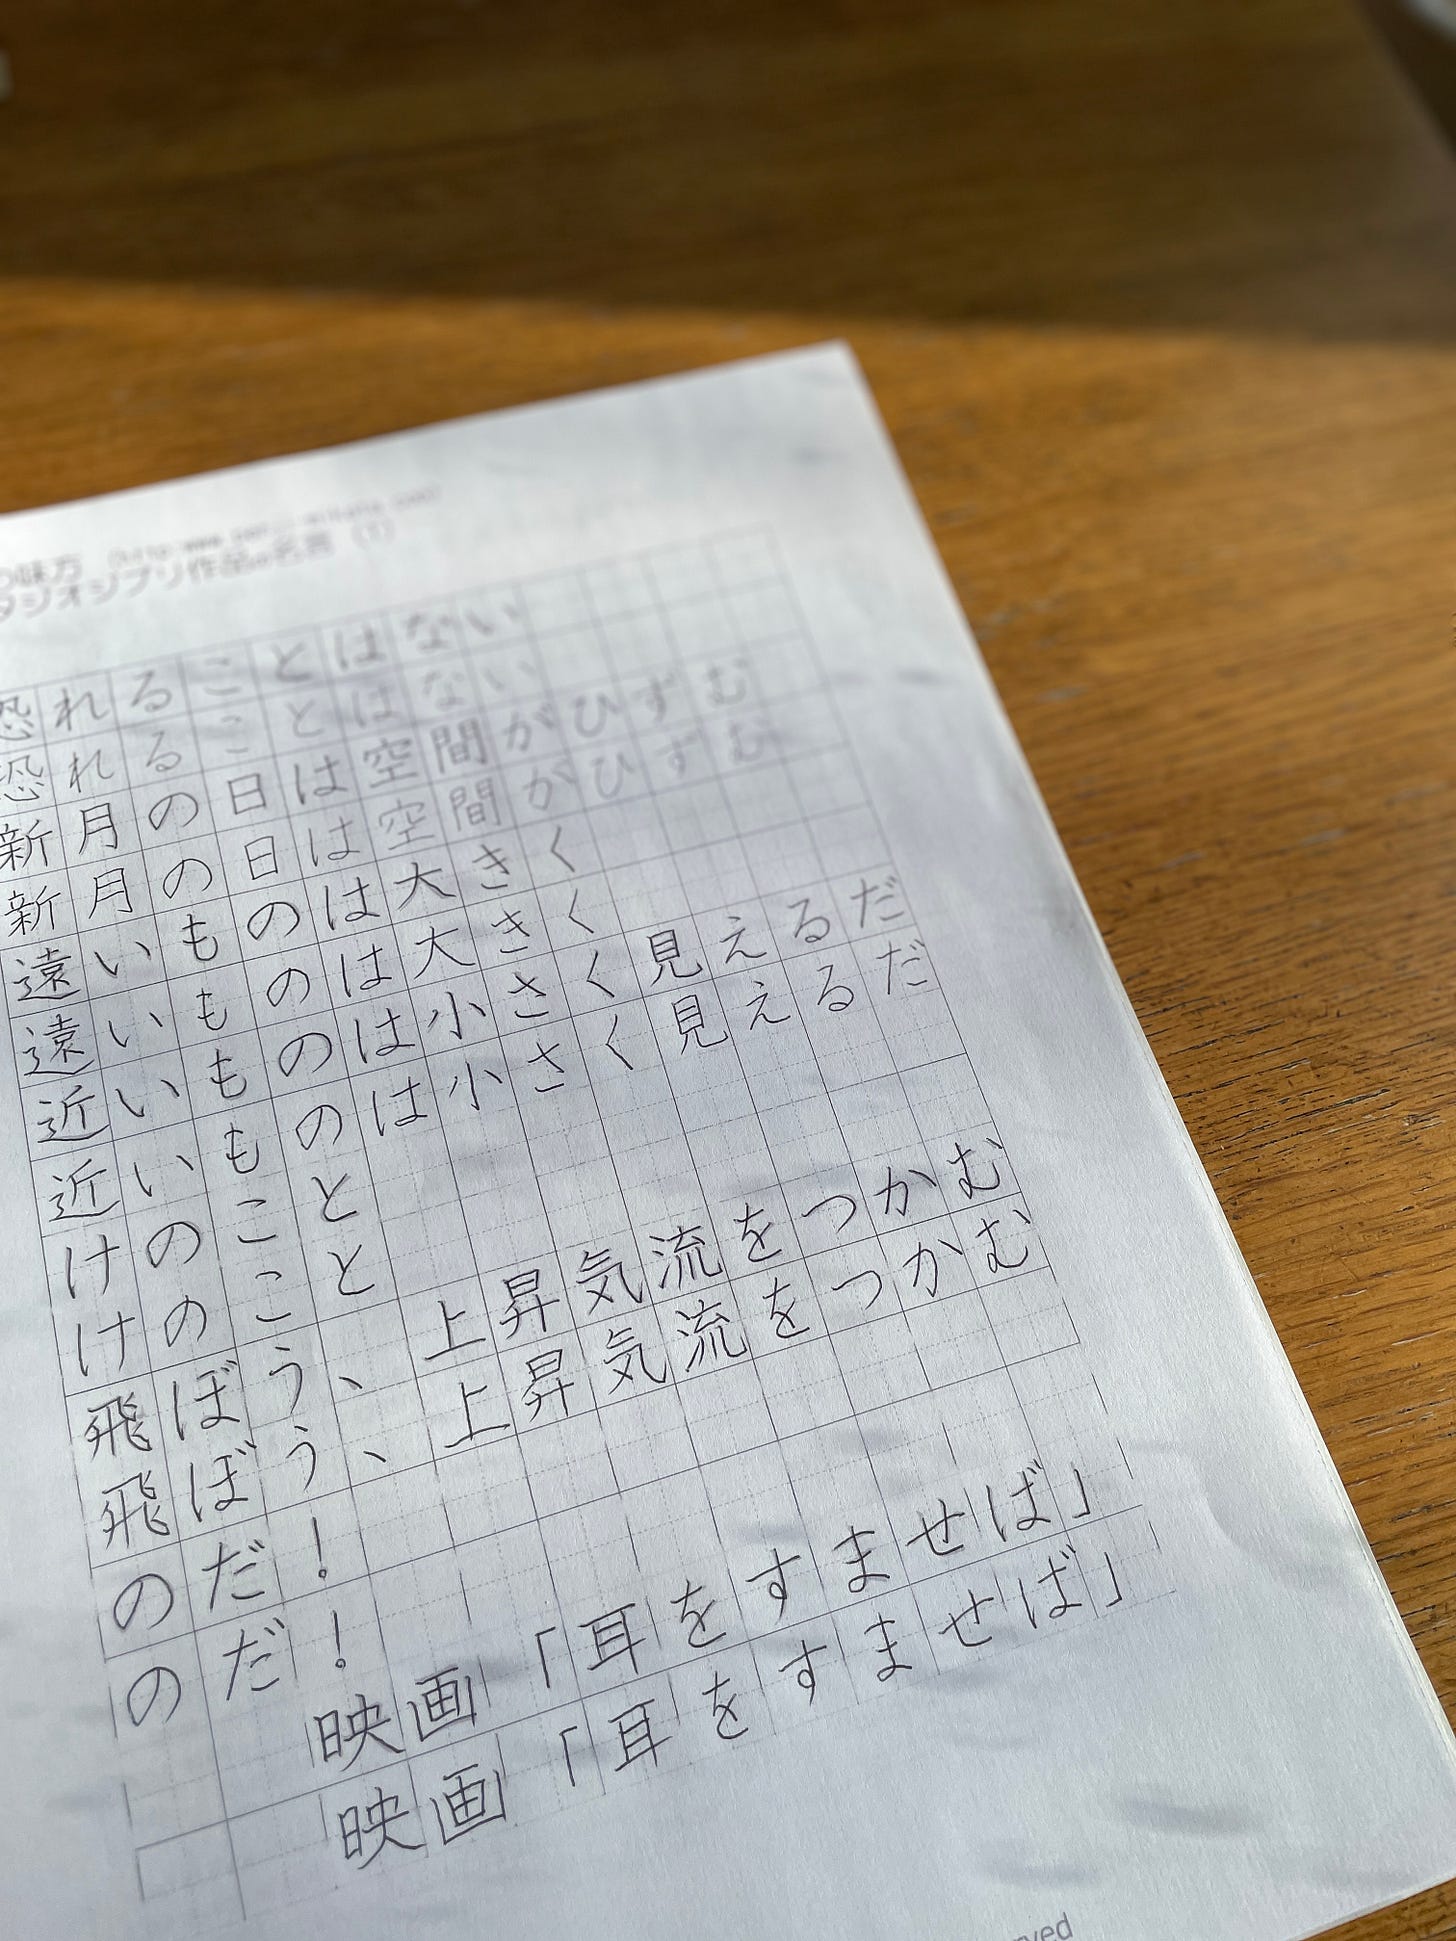 の味方
タジオジブリ作品の名言 (1)
恐れることはない
恐れることはない
新月の日は空間がひずむ
新月の日は空間がひずむ
遠いものは大きく
遠いものは大きく
近いものは小さく見えるだ
近いものは小さく見えるだ
けのこと
けのこと
飛ぼう、上昇気流をつかむ
飛ぼう、上昇気流をつかむ
のだ!
のだ!
映画「耳をすませば」
映画「耳をすませば」